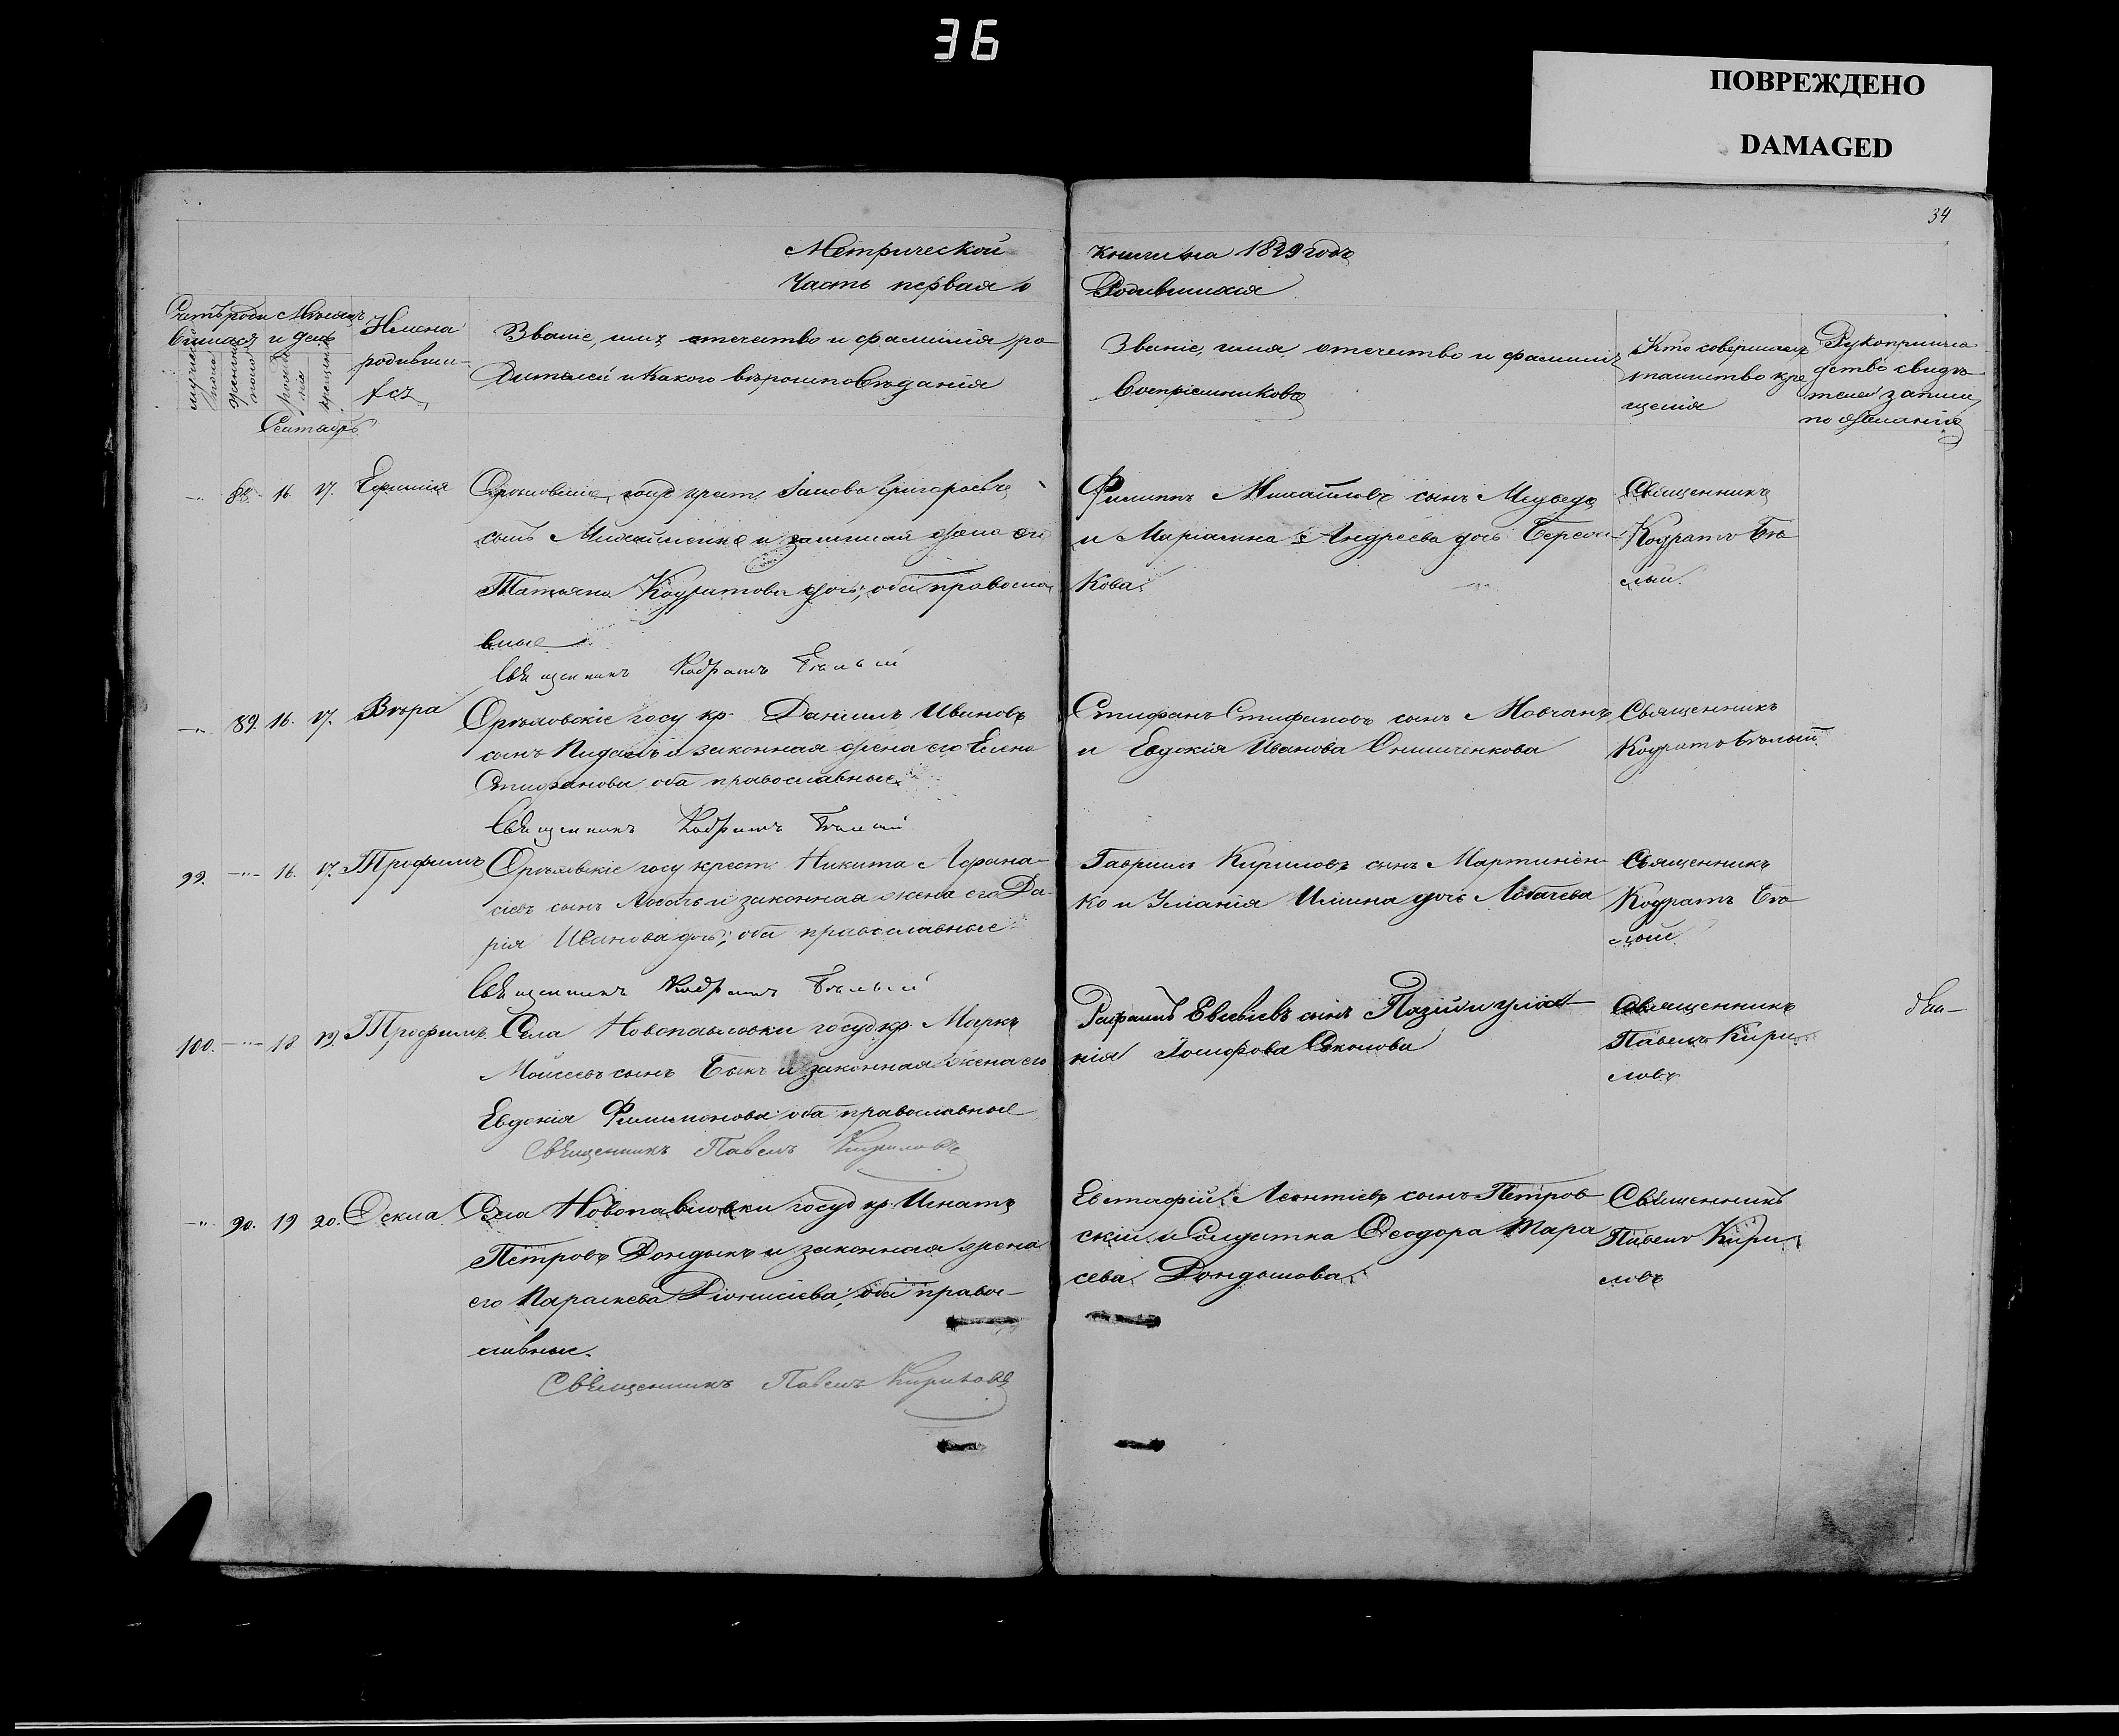 36
ПОВРЕЖДЕНО
DAMAGED
34
Метрической книги на 1849 годъ
Часть первая о Родившихся
Счетъ роди Мѣсяцъ
вшихся и день
мужеска пола
женска пола
рожденія
крещенія
Имена
родивши-
хся
Званіе, имя, отечество и фамилія ро-
дителей и какого вѣроисповѣданія
Званіе, имя, отечество и фамилія
Воспріемниковъ
Кто совершалъ
таинство кре
щенія
Рукоприкла
дство свидѣ-
телей записи
по желанію
Сентябрь
88. 16. 17. Ефимія
государ. крест. Григорьевъ
сынъ и законная жена его
Татьяна Кодратова дочь; оба правосла
вные
Священникъ Кодратъ Бѣлый
Филиппъ Михайловъ сынъ Медведь
и Маріанна Андреева дочь
кова.
Священникъ
Кодратъ Бѣ
лый.
89. 16. 17. Вѣра
Орѣховскіе госу кр. Даніилъ Ивановъ
сынъ и законная жена его Елена
Стифанова оба православные.
Священникъ Кодратъ Бѣлый
Стифанъ Стифановъ сынъ Мовчанъ
и Евдокія Иванова Онищенкова
Священникъ
Кодратъ Бѣлый.
99. 16. 17. Трофимъ
Орѣховскіе госу крест. Никита Афана-
сіевъ сынъ Лобачь и законная жена его Да-
рія Иванова дочь; оба православные
Священникъ Кодратъ Бѣлый
Гавриилъ Кириловъ сынъ Мартинен-
ко и Уліанія Ильина дочь Лобачева
Священникъ
Кодратъ Бѣ
лый.
100. 18 19. Трофимъ.
Села Новопавловки госуд кр. Маркъ
Моисеевъ сынъ Быкъ и законная жена его
Евдокія Филимонова оба православные
Священникъ Павелъ Кириловъ
Евсевіевъ сынъ и Уліа-
нія Іосифова
Священникъ
Павелъ Кири
ловъ
90. 19 20. Фекла.
Села Новопавловки госуд кр. Игнатъ
Петровъ Дондыкъ и законная жена
его Параскева Діонисіева; оба право-
славные.
Священникъ Павелъ Кириловъ
Евстафій Леонтіевъ сынъ Петров
скій и Солдатка Феодора Тара
сева Дондыкова.
Священникъ
Павелъ Кири
ловъ